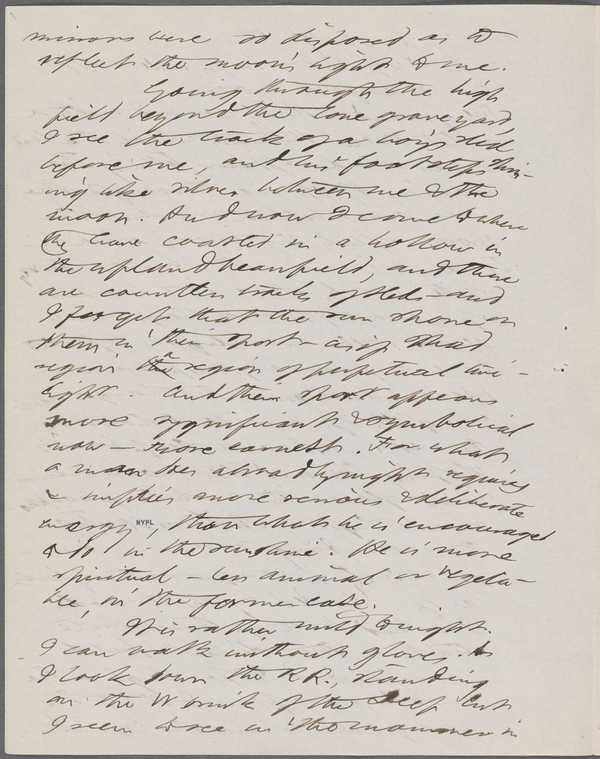 mirrors were so disposed as to
reflect the moon's light to me.
Going through the high
field beyond the lone graveyard,
I see the track of a boy's sled
before me, and his footsteps shin-
ing like silver between me & the
moon. And now I come to where
they have coasted in a hollow in
the upland beanfield, and there
are countless tracks of sleds and
I forget that the sun shone on
them in their sport — as if I had
region the a region of perpetual twi-
light. And their sport appears
more significant & symbolical
now — more earnest. For what
a man does abroad by night requires
& implies more serious & deliberate
energy, than what he is encouraged
NYPL
to do in the sunshine. He is more
spiritual — less animal or vegeta-
ble, in the former case.
It is rather mild to-night.
I can walk without gloves. As
I look down the RR., standing
on the W brink of the deep cut
I seem to see in the manner in